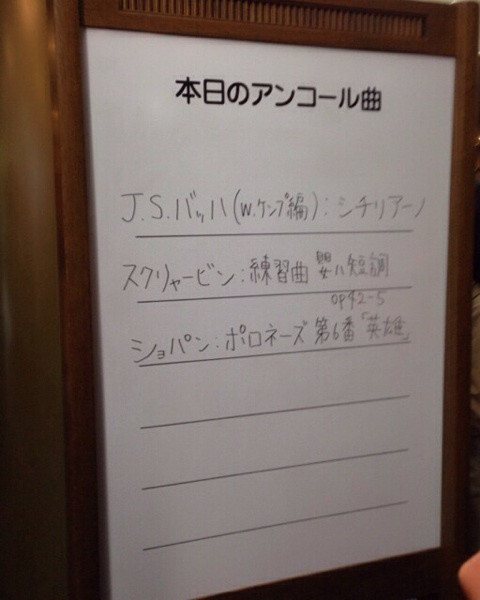 本日のアンコール曲
J.S.バッハ(W.ケンプ編):シチリアーノ
スクリャービン:練習曲 嬰ハ短調
op42-5
ショパン:ポロネーズ 第6番「英雄」